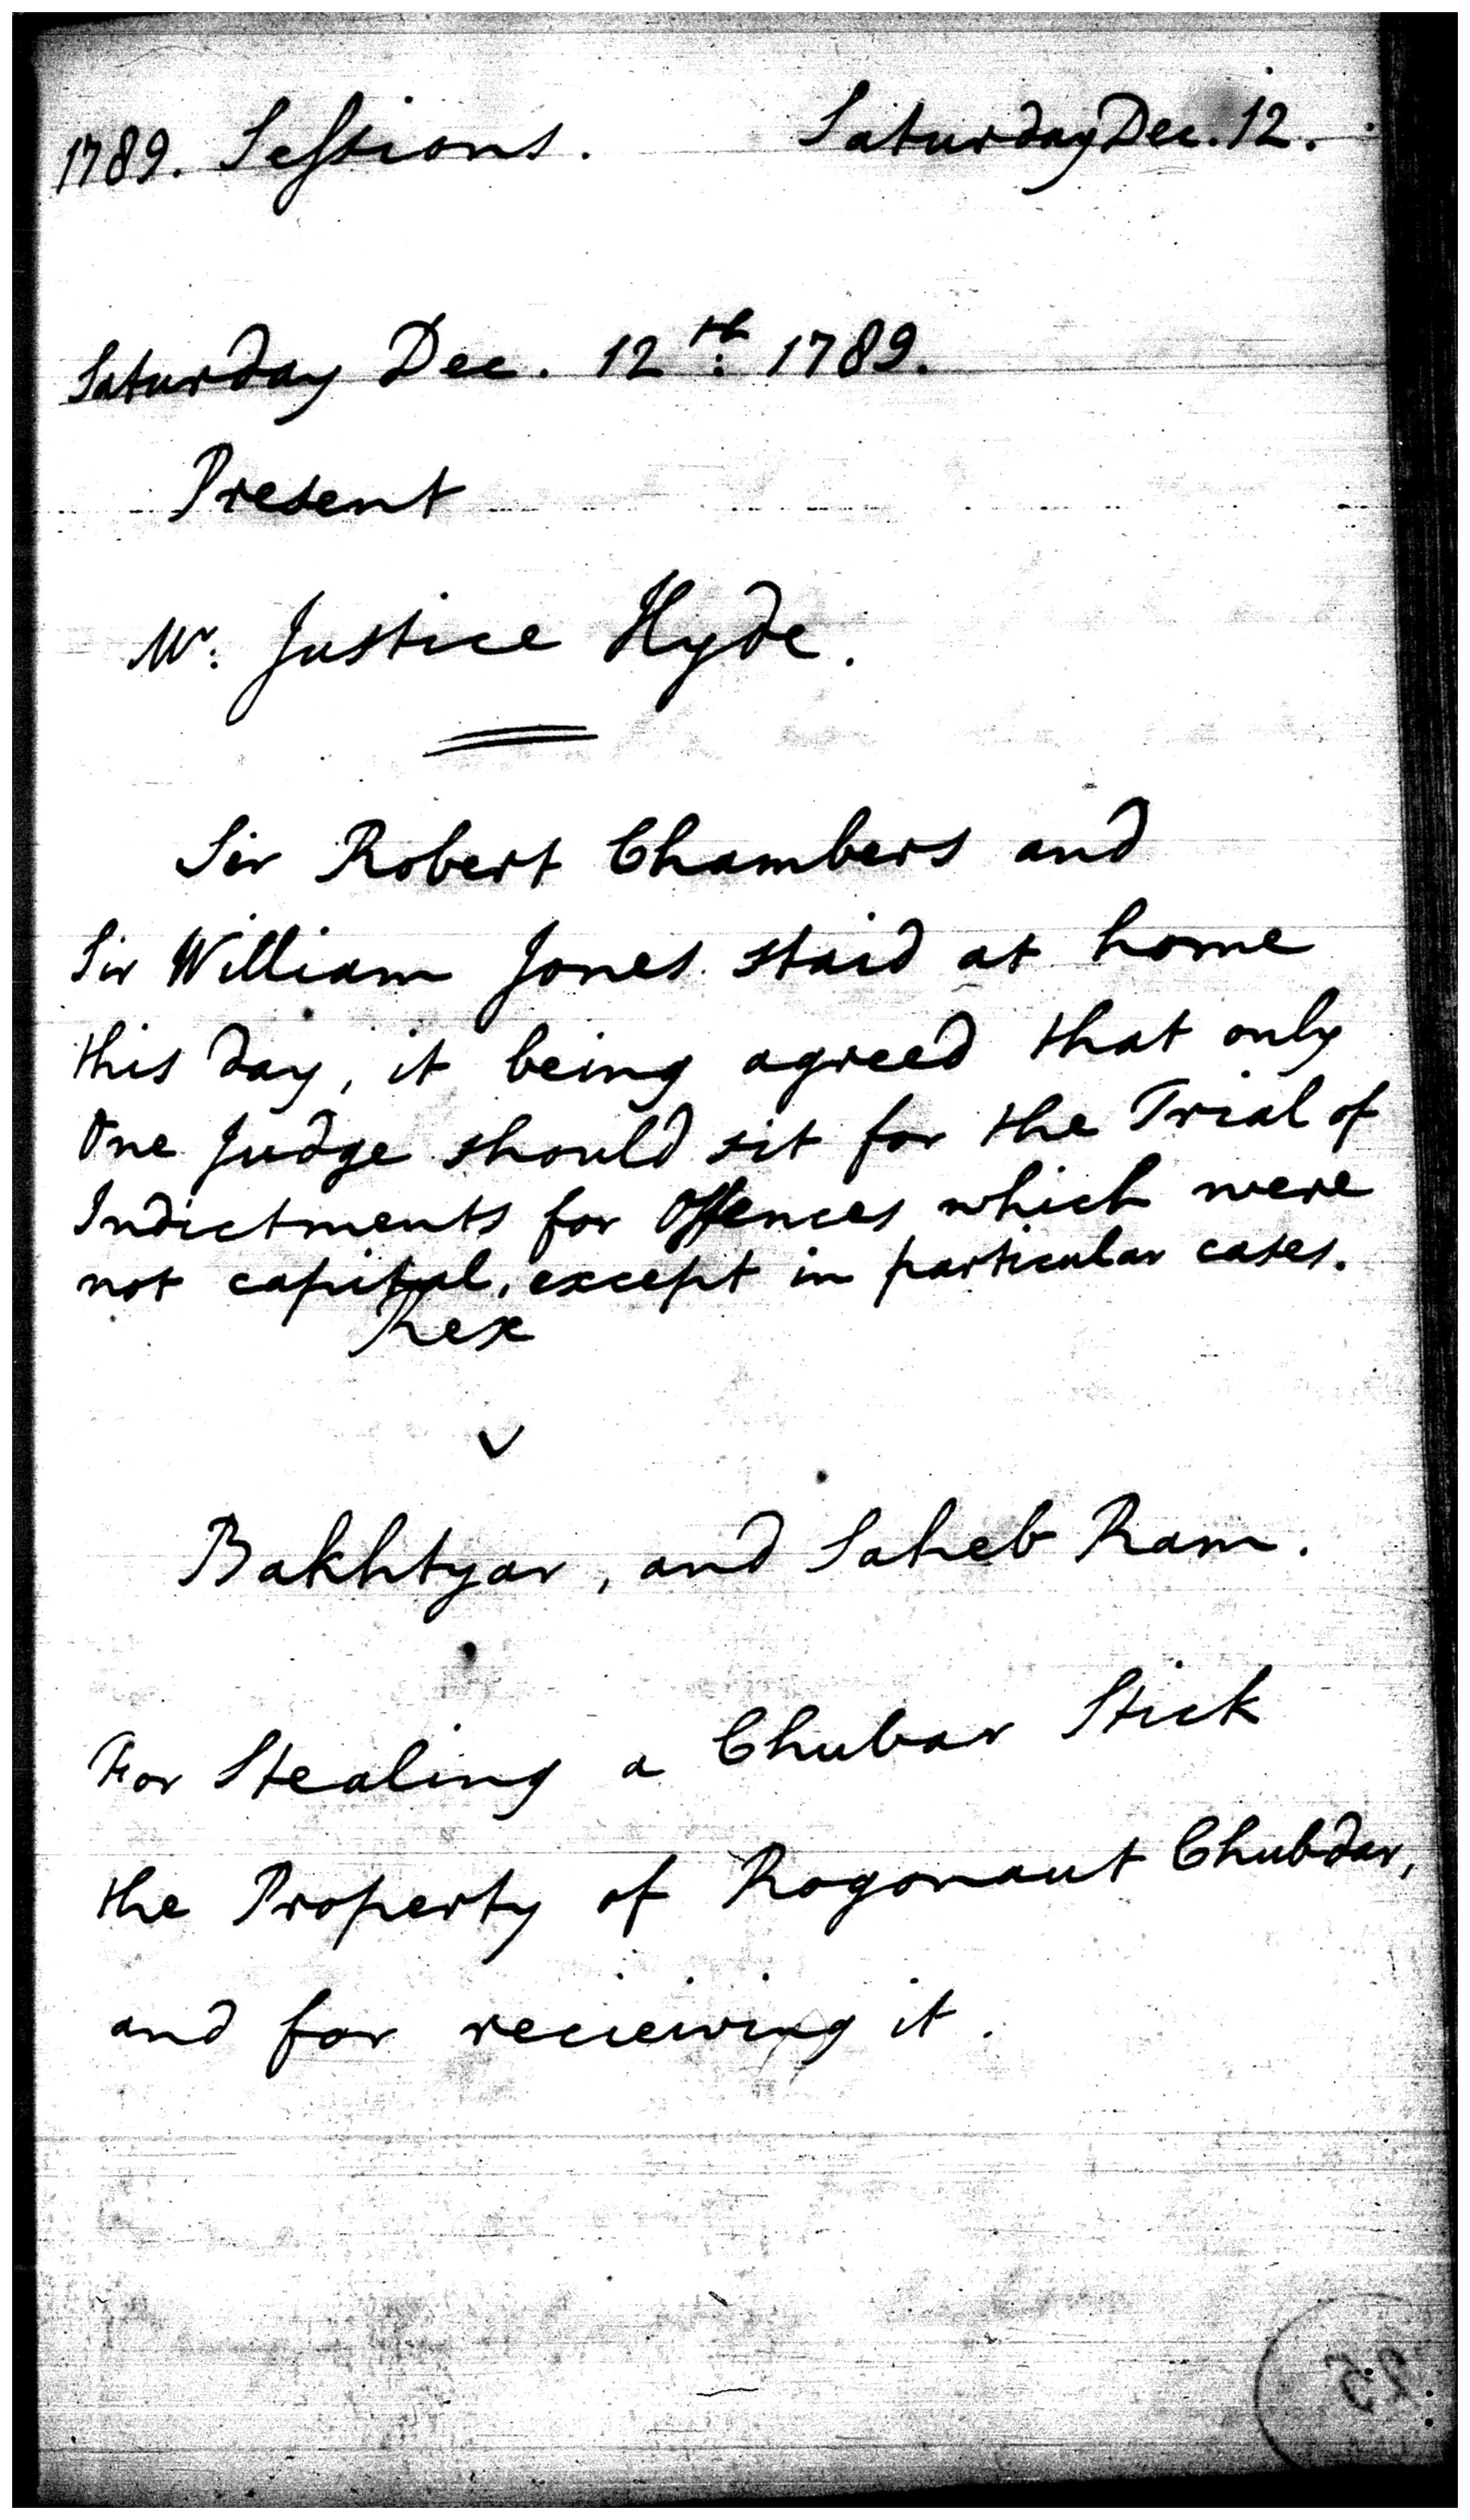 1789. Sessions. Saturday Dec. 12.
Saturday Dec. 12th. 1789.
Present
Mr. Justice Hyde.
Sir Robert Chambers and
Sir William Jones staid at home
this day, it being agreed that only
One Judge should sit for the Trial of
Indictments for Offences which were
not capital, except in particular cases.
Rex
v
Bakhtyar, and Saheb Ram.
For Stealing a Chubar Stick
the Property of Rogonaut Chubdar,
and for recieving it.
25